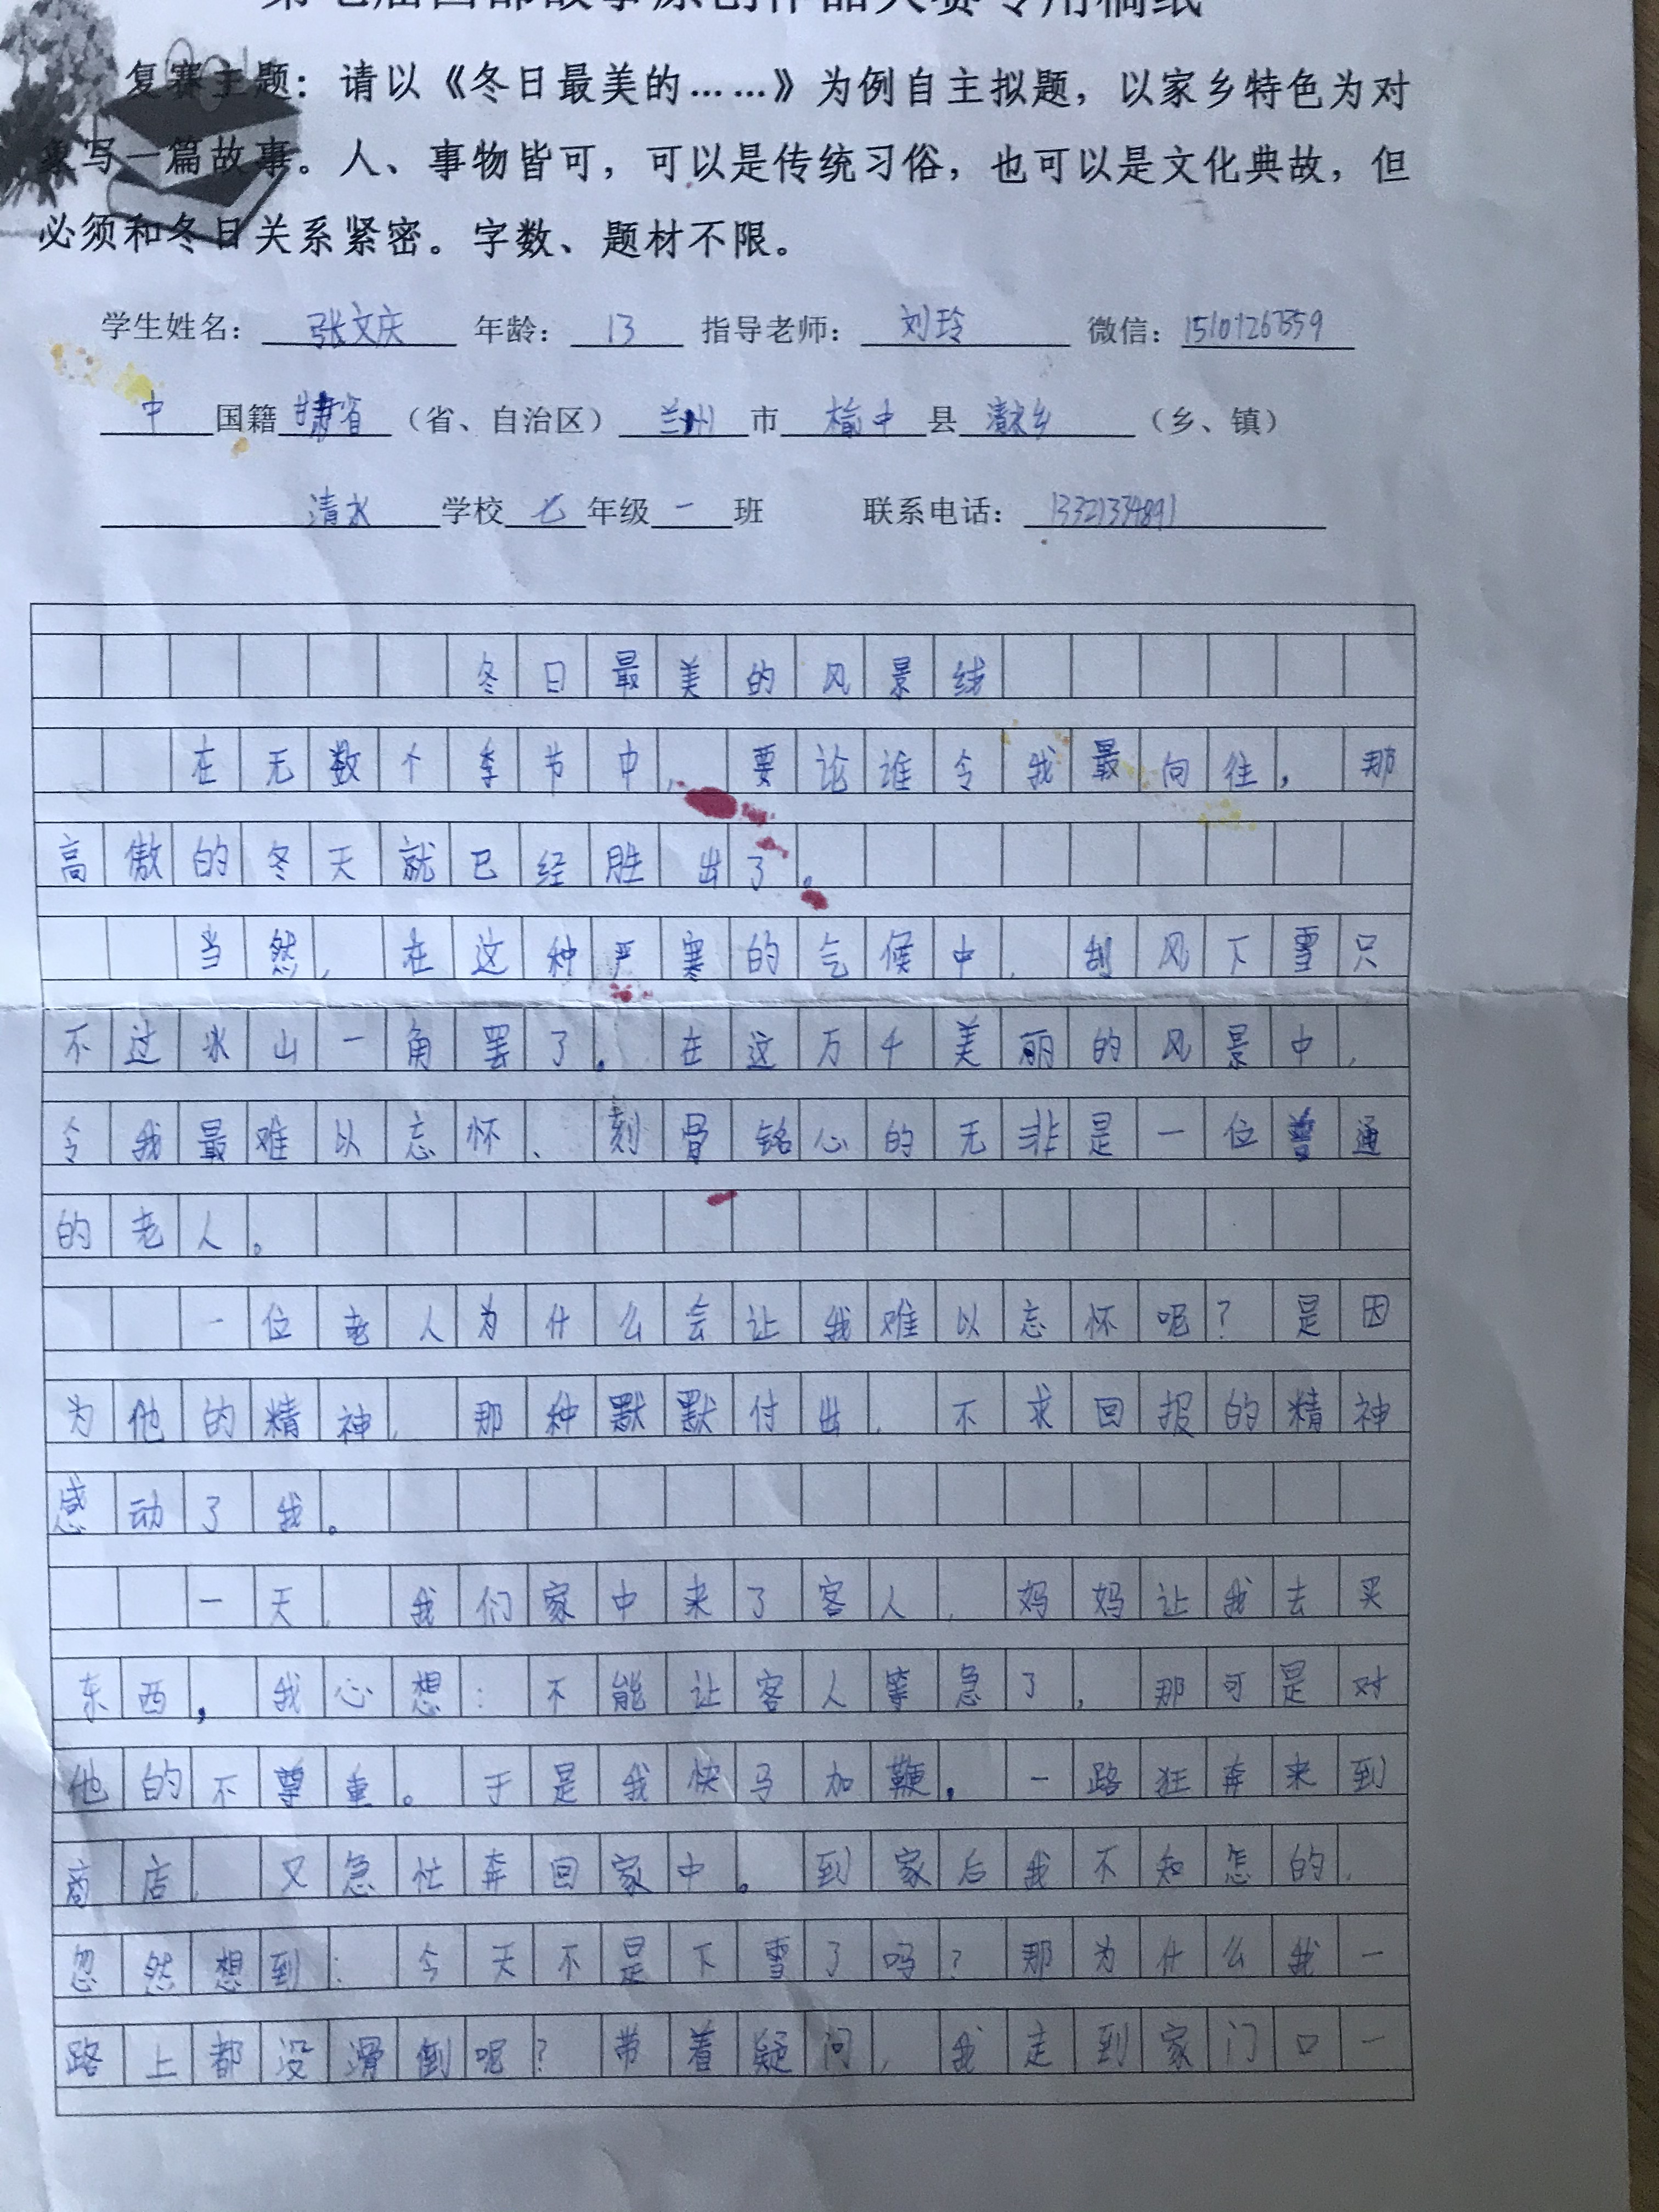 复赛主题：请以《冬日最美的……》为例自主拟题，以家乡特色为对
象写一篇故事。人、事物皆可，可以是传统习俗，也可以是文化典故，但
必须和冬日关系紧密。字数、题材不限。
学生姓名：张文庆 年龄：13 指导老师：刘玲 微信：
中国籍甘肃省（省、自治区）兰州市榆中县清水乡（乡、镇）
清水学校七年级一班 联系电话：
冬日最美的风景线
在无数个季节中，要论谁令我最向往，那
高傲的冬天就已经胜出了。
当然，在这种严寒的气候中，刮风下雪只
不过冰山一角罢了。在这万千美丽的风景中，
令我最难以忘怀、刻骨铭心的无非是一位普通
的老人。
一位老人为什么会让我难以忘怀呢？是因
为他的精神，那种默默付出，不求回报的精神
感动了我。
一天，我们家中来了客人，妈妈让我去买
东西，我心想：不能让客人等急了，那可是对
他的不尊重。于是我快马加鞭。一路狂奔来到
商店，又急忙奔回家中。到家后我不知怎的，
忽然想到：今天不是下雪了吗？那为什么我一
路上都没滑倒呢？带着疑问，我走到家门口一